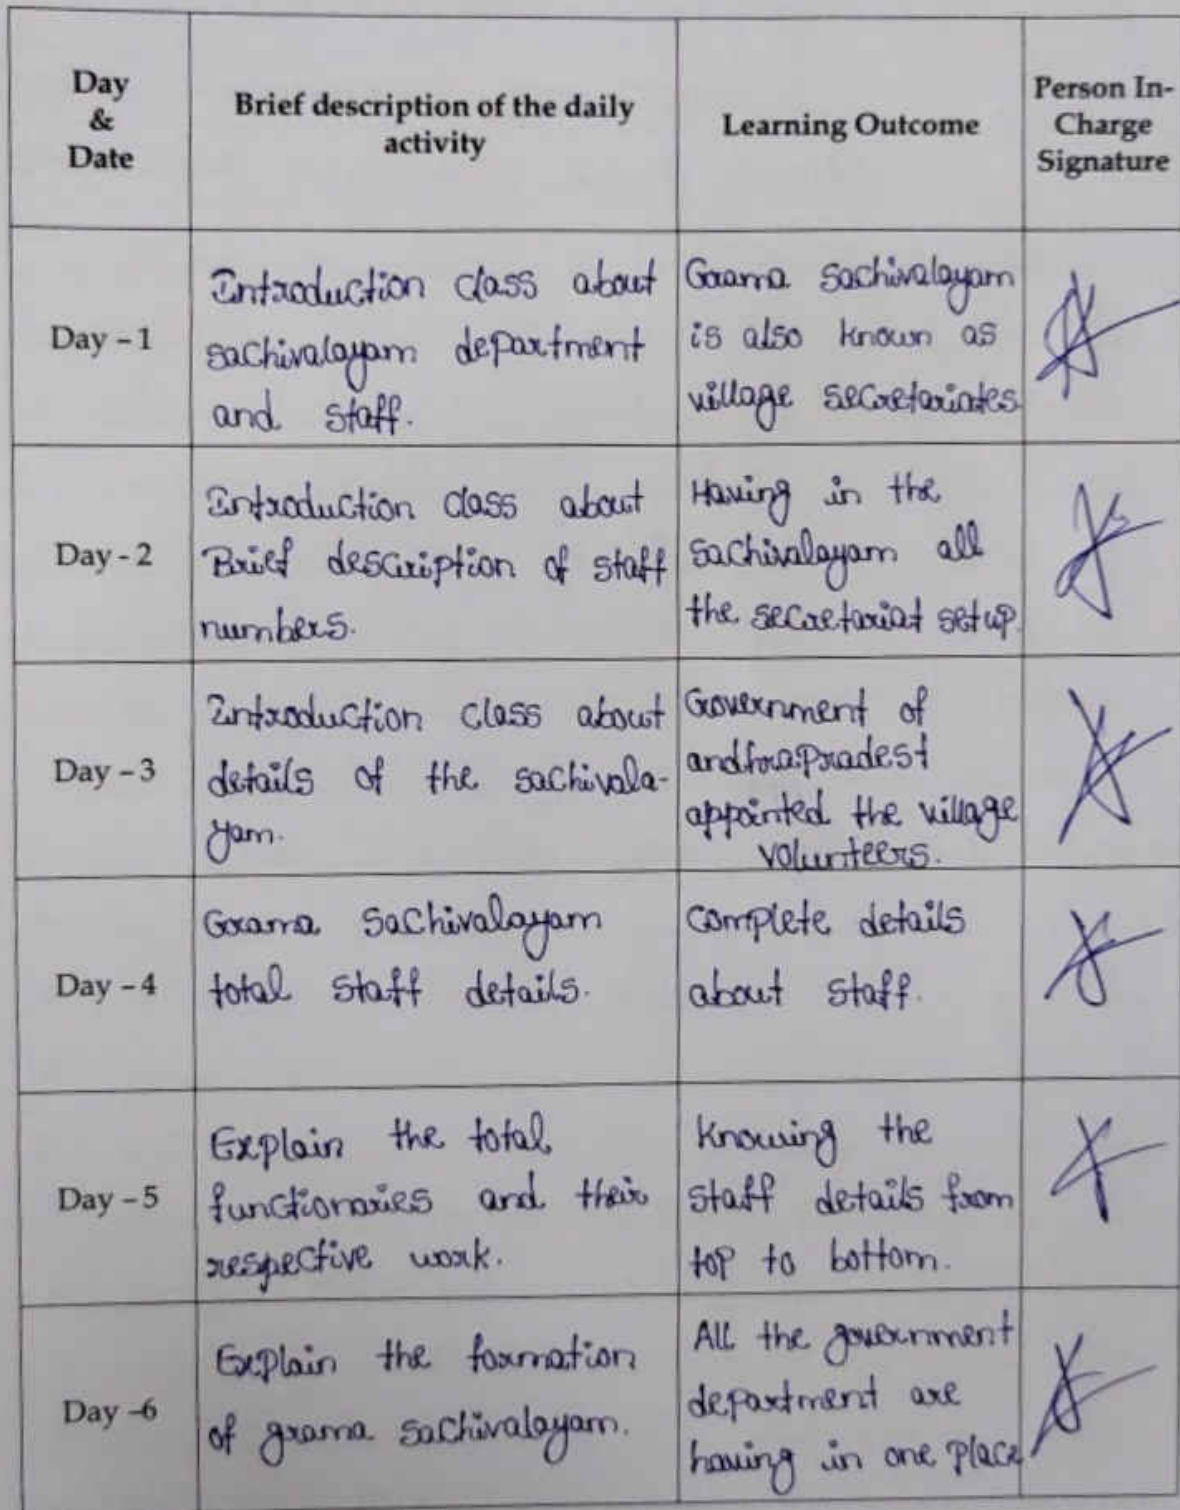 Day
&
Date
Brief description of the daily
activity
Learning Outcome
Person In-
Charge
Signature
Day - 1
Introduction class about
sachivalayam department
and staff.
Grama sachivalayam
is also known as
village secretariates
Day - 2
Introduction class about
Brief description of staff
numbers.
Having in the
sachivalayam all
the secretariat setup.
Day - 3
Introduction class about
details of the sachivala-
yam.
Government of
andhrapradest
appointed the village
volunteers.
Day - 4
Grama Sachivalayam
total staff details.
Complete details
about staff.
Day - 5
Explain the total
functionaries and their
respective work.
Knowing the
staff details from
top to bottom.
Day -6
Explain the formation
of grama sachivalayam.
All the government
department are
having in one place